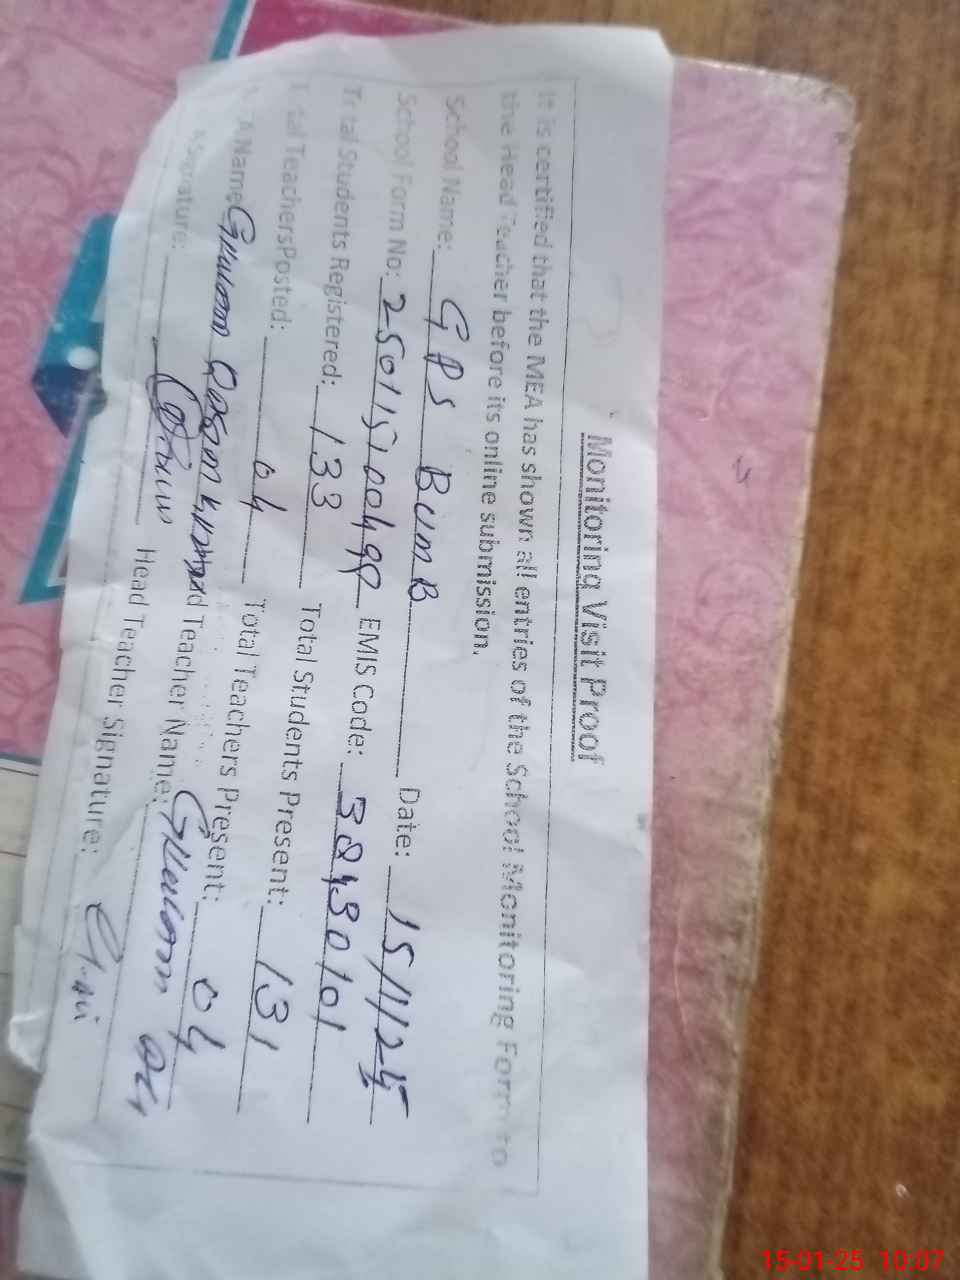 Monitoring Visit Proof
It is certified that the MEA has shown all entries of the School Monitoring Form to
the Head Teacher before its online submission.
School Name: GPS BUMB Date: 15/1/25
School Form No: 25011510049 EMIS Code: 38430101
Total Students Registered: 133 Total Students Present: 131
Total Teachers Posted: 04 Total Teachers Present: 04
Name Ghulam Teacher Name: Ghulam
Signature: Head Teacher Signature:
15-01-25 10:07